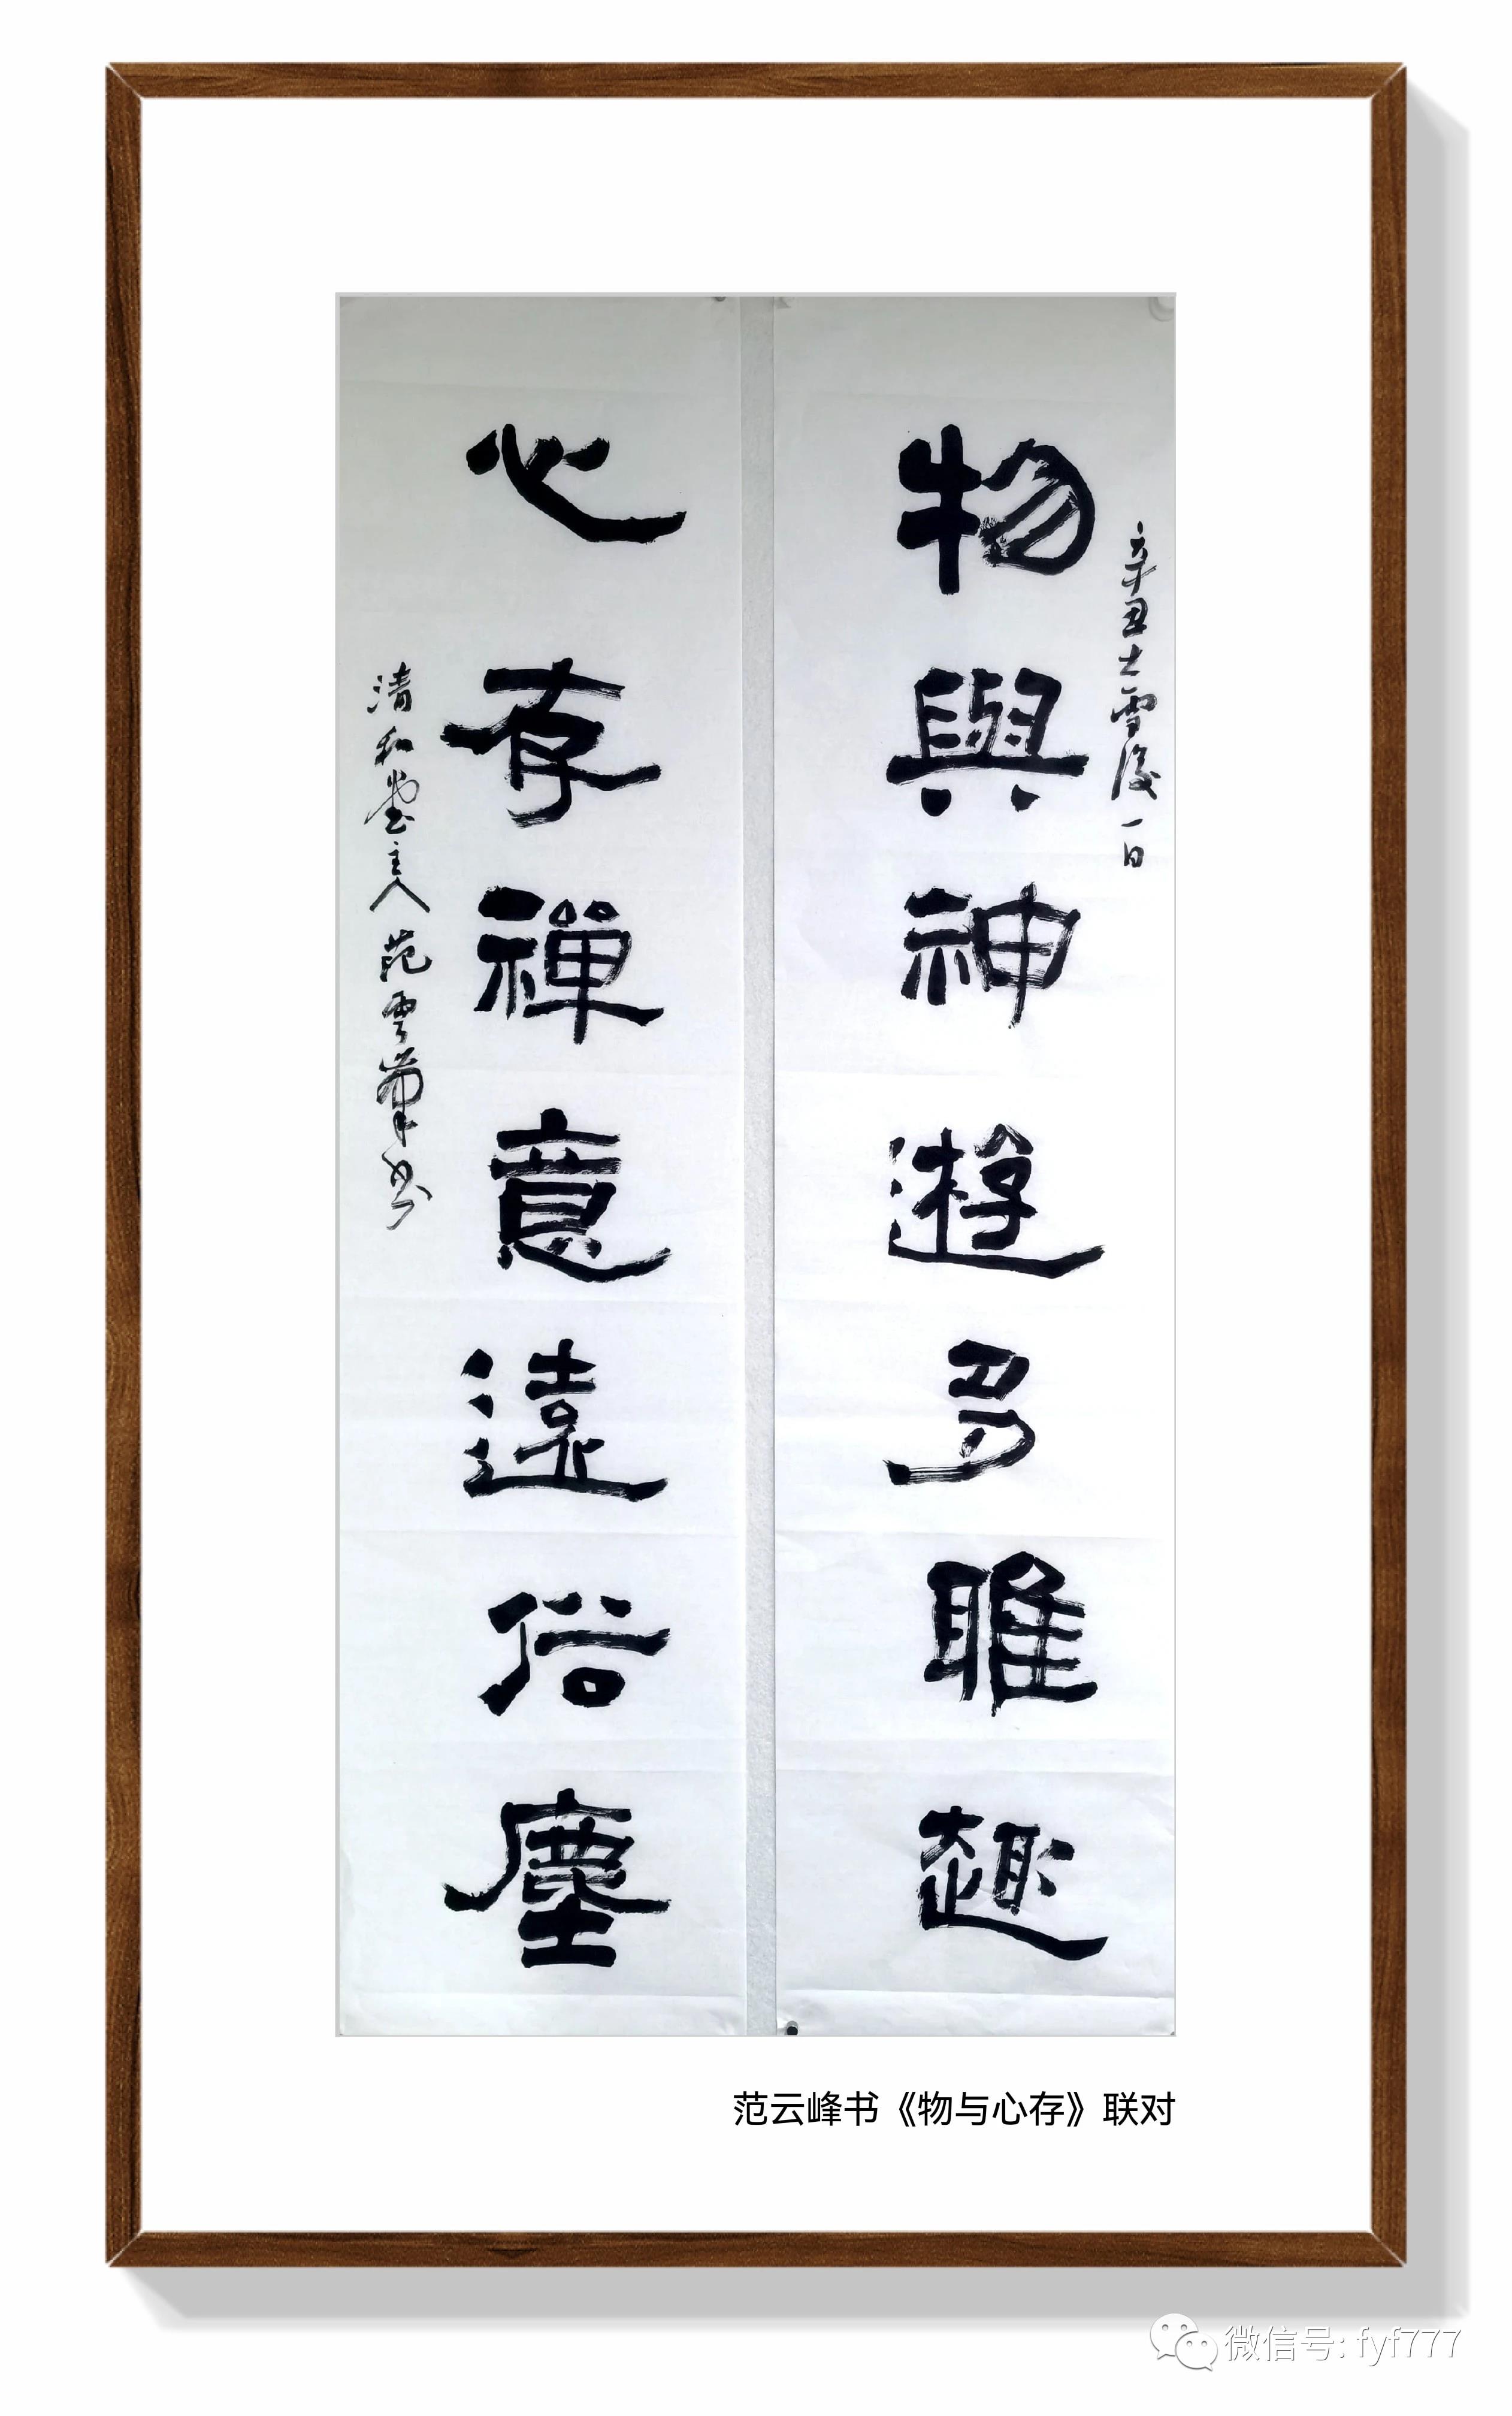 辛丑大雪後一日
物與神遊多雅趣
心存禪意遠俗塵
清和堂主人范雲峯书
范云峰书《物与心存》联对
微信号: fyf777